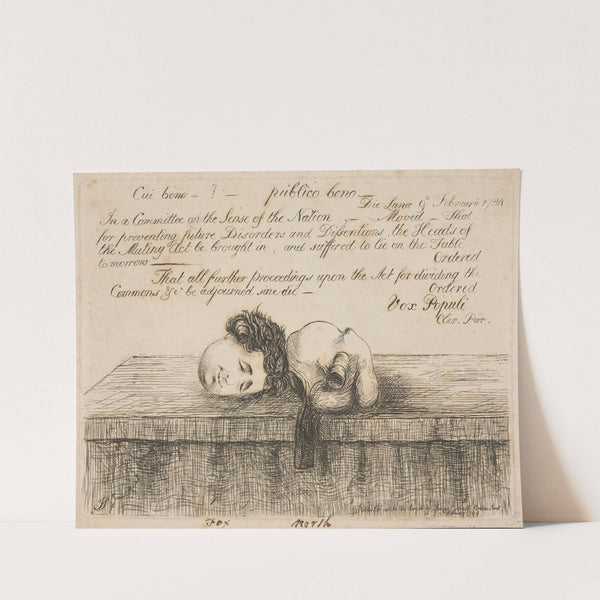 Cui bono - ? - publico bono -
Die Lunæ 9° Februarii 1784
In a Committee on the Sense of the Nation - Moved - That
for preventing future Disorders and Dissentions, the Heads of
the Mutiny Act be brought in, and suffered to lie on the Table
tomorrow Ordered
That all further proceedings upon the Act for dividing the
Commons &c be adjourned sine die - Ordered
Vox Populi
Cler. Par.
Fox North